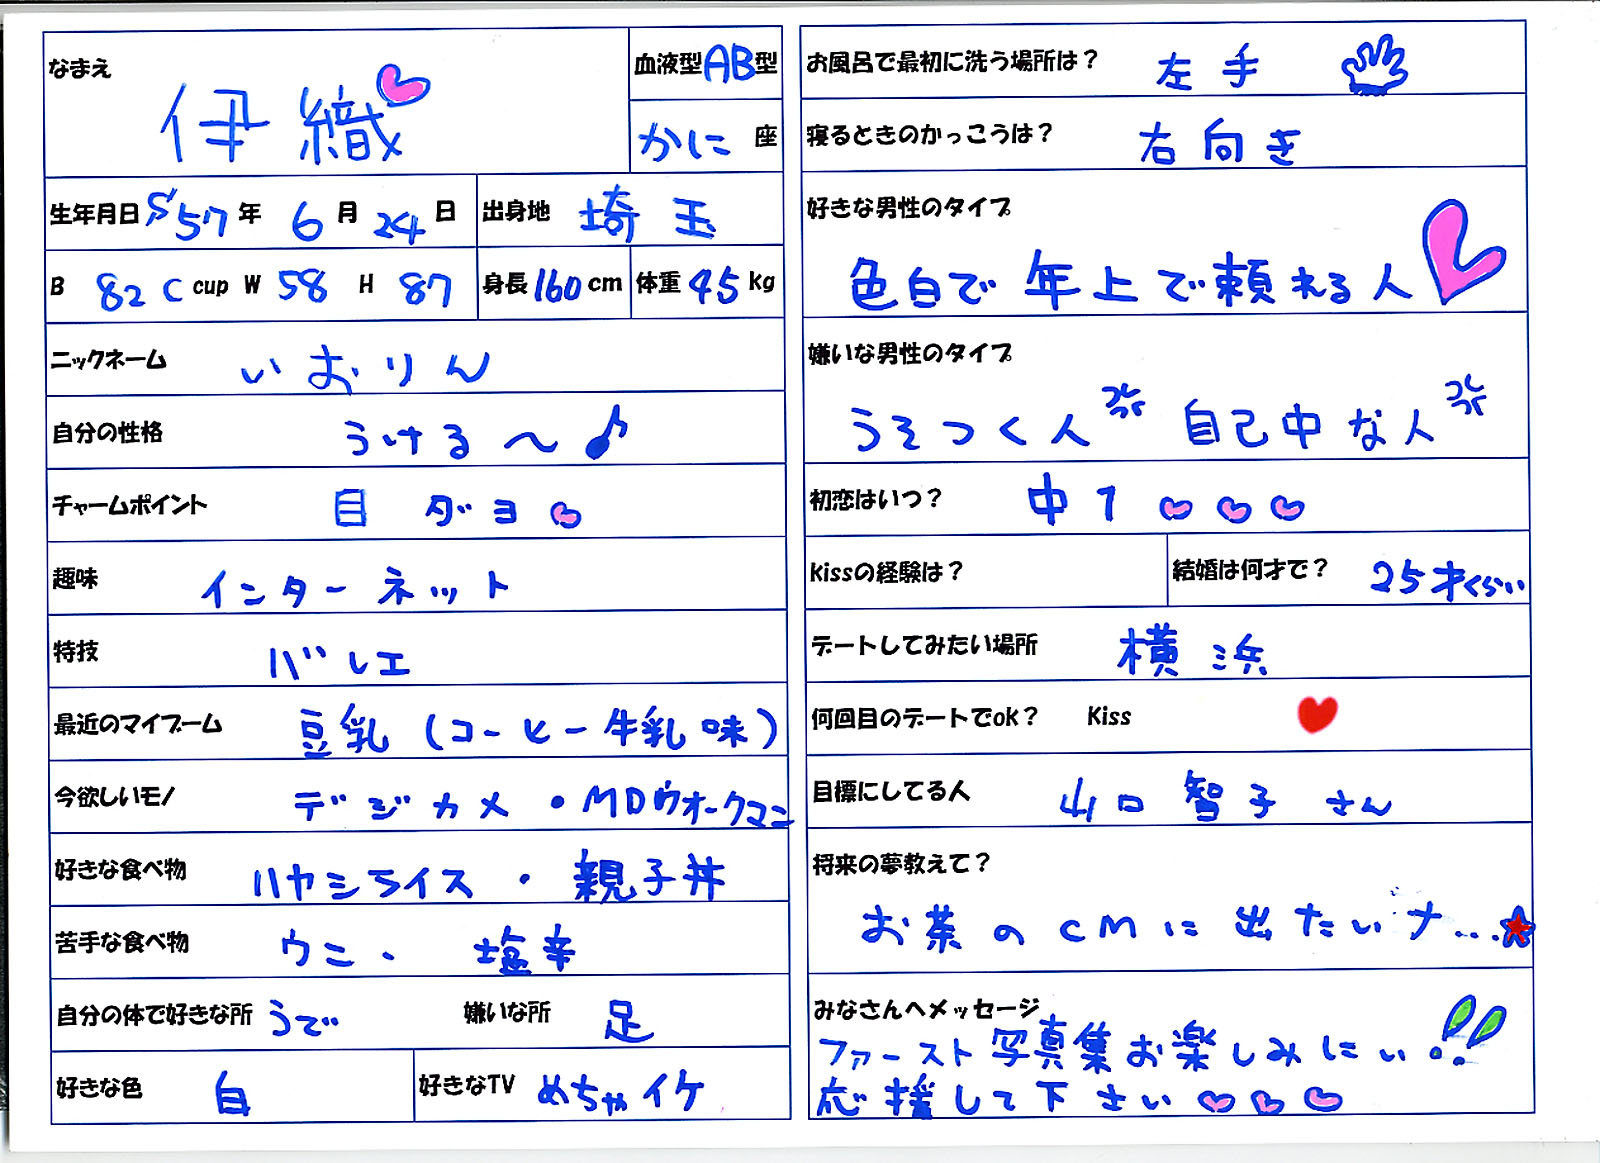 なまえ 伊織
血液型 AB型
かに座
生年月日 S57年 6月 24日 出身地 埼玉
B 82 C cup W 58 H 87 身長160cm 体重45kg
ニックネーム いおりん
自分の性格 うける〜♪
チャームポイント 目 ダヨ
趣味 インターネット
特技 バレエ
最近のマイブーム 豆乳(コーヒー牛乳味)
今欲しいモノ デジカメ・MDウォークマン
好きな食べ物 ハヤシライス・親子丼
苦手な食べ物 ウニ・塩辛
自分の体で好きな所 うで 嫌いな所 足
好きな色 白 好きなTV めちゃイケ
お風呂で最初に洗う場所は? 左手
寝るときのかっこうは? 右向き
好きな男性のタイプ
色白で年上で頼れる人
嫌いな男性のタイプ
うそつく人 自己中な人
初恋はいつ? 中1
Kissの経験は? 結婚は何才で? 25才くらい
デートしてみたい場所 横浜
何回目のデートでok? Kiss
目標にしてる人 山口智子さん
将来の夢教えて?
お茶のCMに出たいナ...
みなさんへメッセージ
ファースト写真集お楽しみにぃ!!
応援して下さい